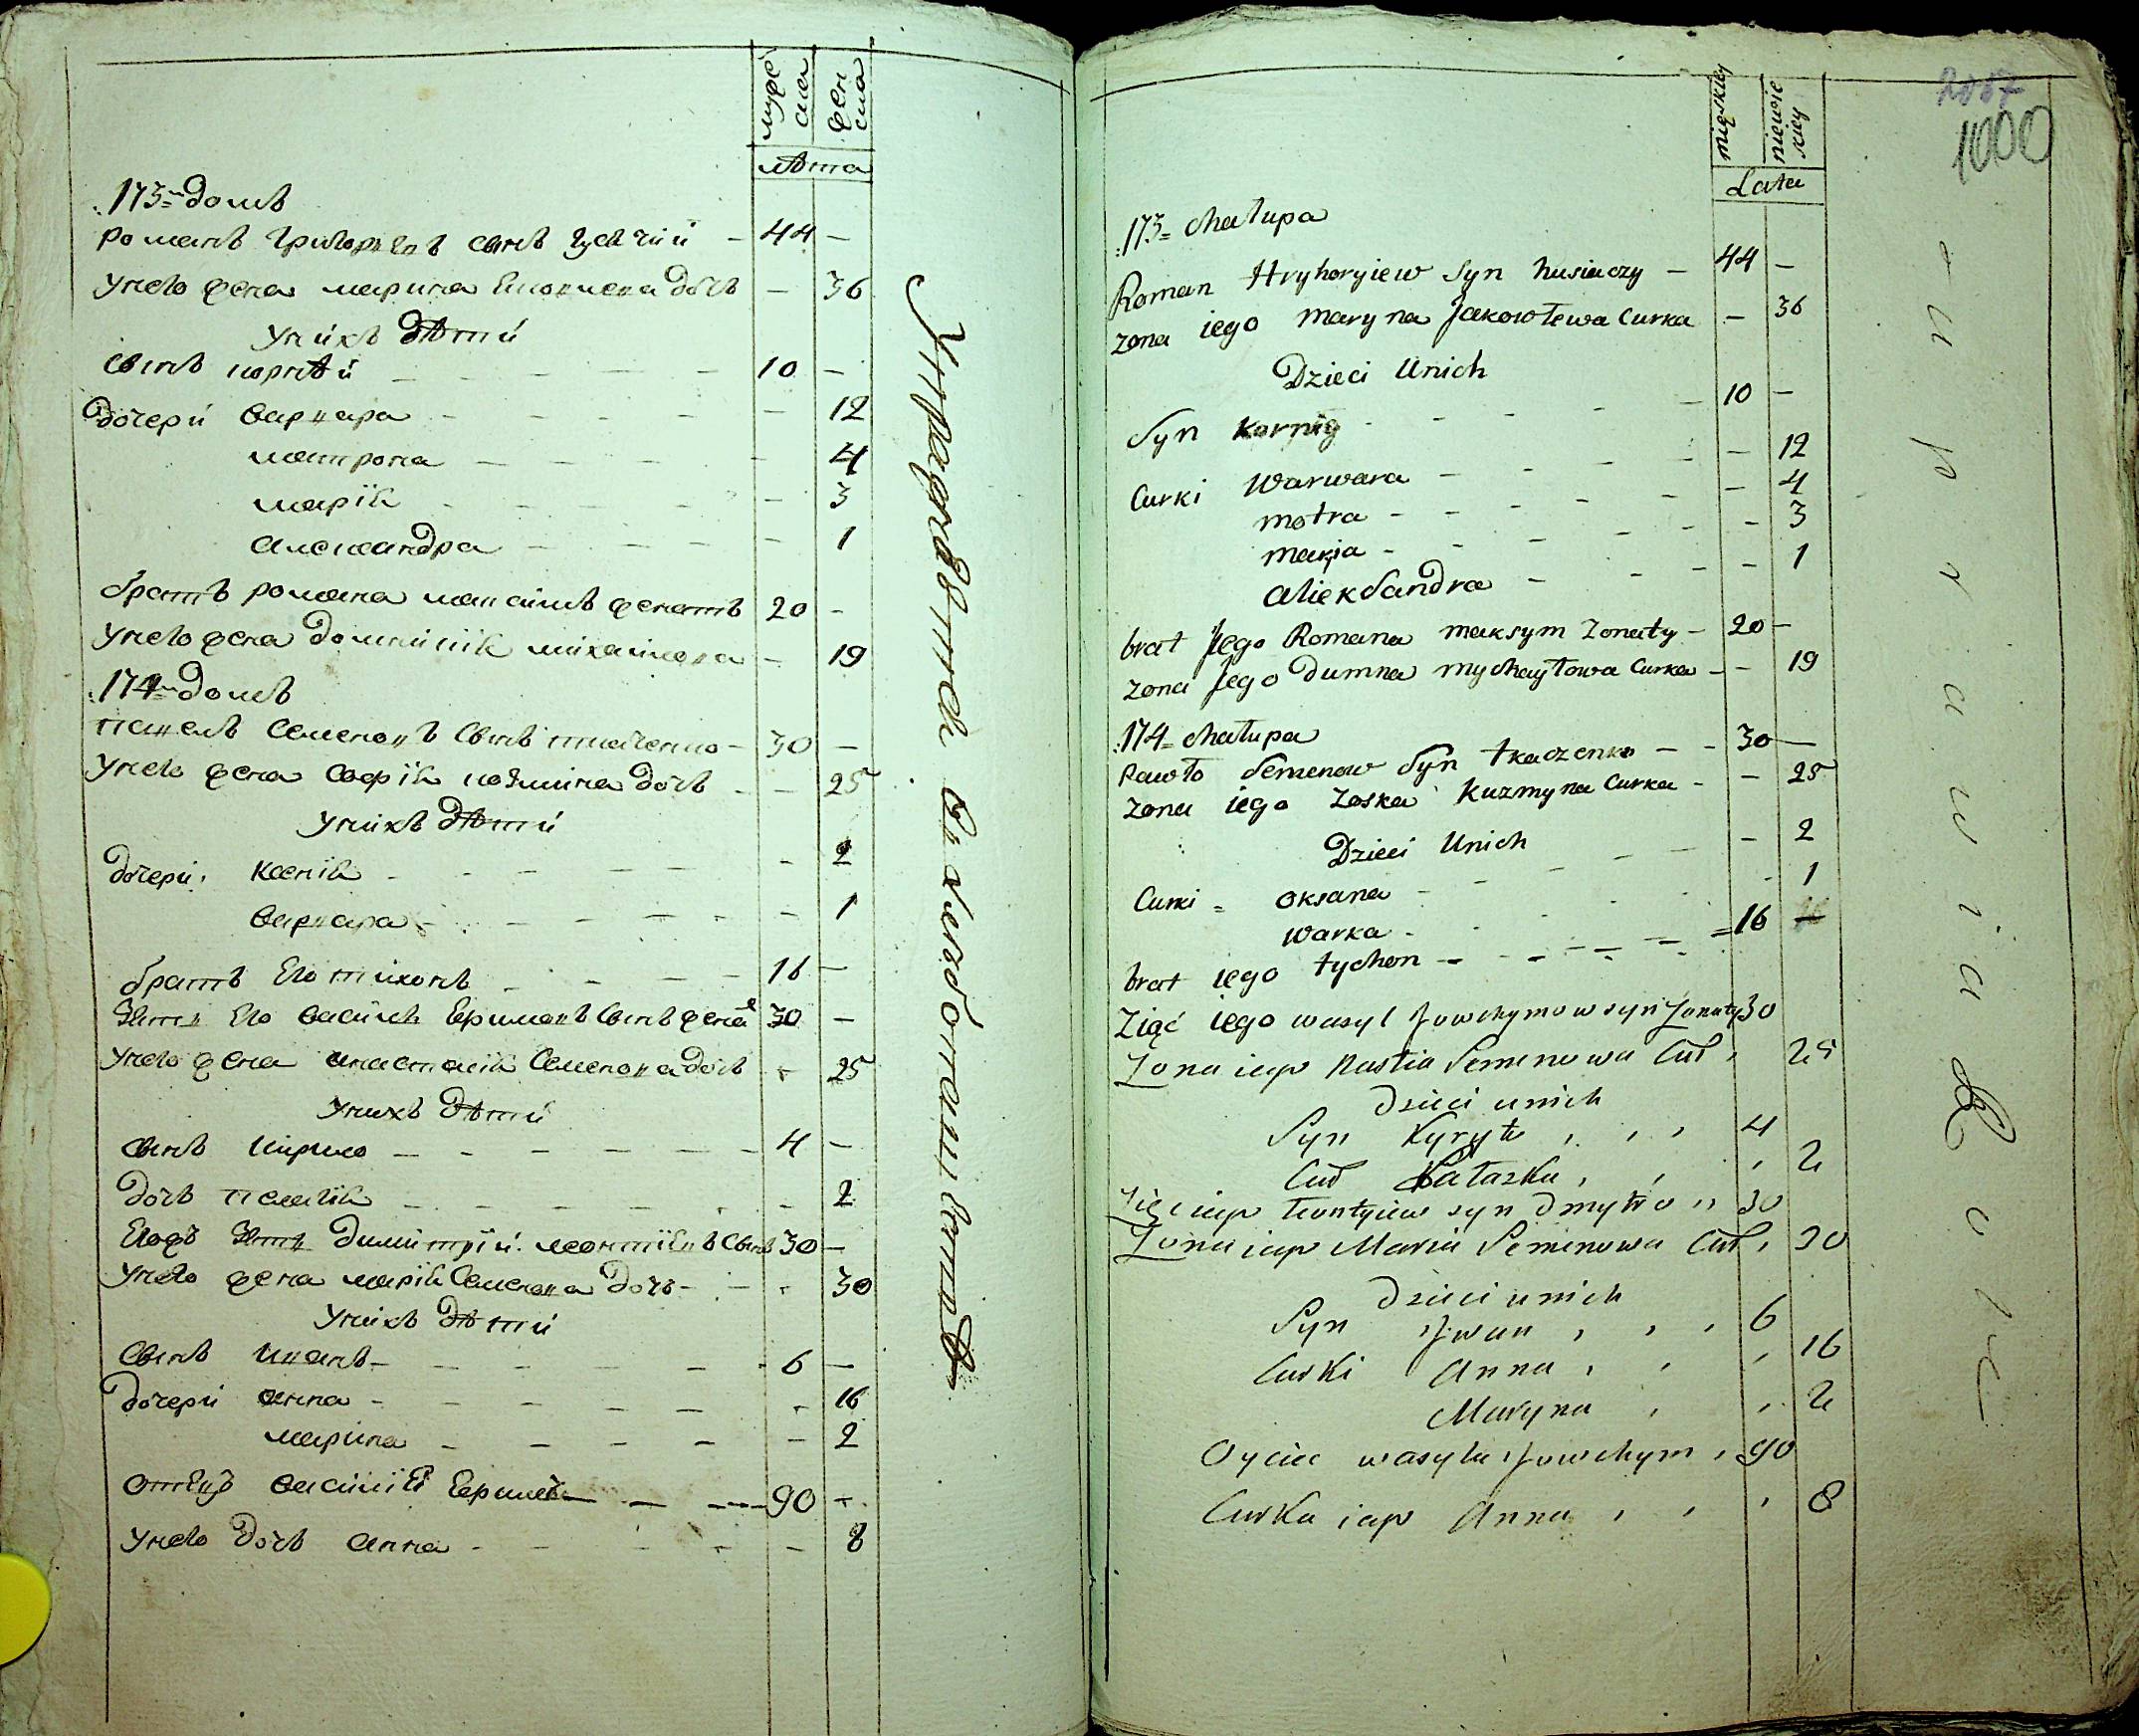 мужеска женска
лѣта
173й домъ
романъ григорьевъ сынъ гусячий - 44 -
унего жена марина яковлева дочь - 36
унихъ дѣти
сынъ корнѣй - 10 -
дочери варвара - 12
матрона - 4
марія - 3
александра - 1
братъ романа максимъ женатъ 20 -
унего жена домникія михаилова - 19
174й домъ
павелъ семеновъ сынъ ткаченко - 30 -
унего жена софія козмина дочь - 25
унихъ дѣти
дочери ксенія - 2
варвара - 1
братъ его тихонъ - 16 -
зять его василь ефимовъ сынъ женат 30 -
унего жена анастасія семенова дочь - 25
унихъ дѣти
сынъ кирило - 4 -
дочь - 2
егожъ зять димитрій леонтіевъ сынъ 30 -
унего жена марія семенова дочь - 30
унихъ дѣти
сынъ иванъ - 6 -
дочери анна - 16
марина - 2
отецъ василія ефимъ - 90 -
унего дочь анна - 8
2087
1000
męskiey niewieskiey
Lata
173= chałupa
Roman Hryhoryiew Syn husiaczy - 44 -
zona iego maryna Jakowlewa Curka - 36
Dzieci Unich
Syn Korniy - 10 -
Curki Warwara - 12
motra - 4
marja - 3
alieksandra - 1
brat Jego Romana maksym zonaty - 20 -
zona Jego Dumna mychayłowa Curka - 19
174= chałupa
Pawło Semenow Syn tkaczenko - 30 -
zona iego Zoska Kuzmyna Curka - 25
Dzieci Unich - 2
Curki = Oksana - 1
Warka -
brat iego tychon - 16 -
Ziąć iego wasyl Jowchymow syn Zonaty 30
Zona iego Nastia Semenowa Cur 25
Dzieci unich
Syn Kyryło 4
Cur Pałazka 2
Zięć iego Leontyiew syn Dmytro 30
Zona iego Maria Semenowa Cur 30
Dzieci unich
Syn Jwan 6
Curki Anna 16
Maryna 2
Oyciec wasyla Jowchym 90
Curka iego Anna 8